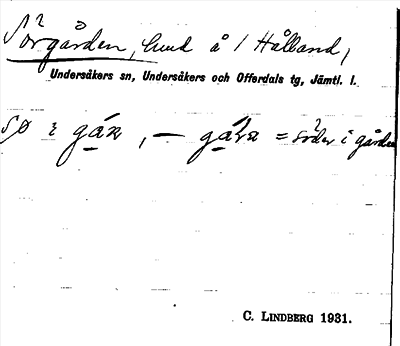 Sörgården, hmd å 1 Hålland,
Undersåkers sn, Undersåkers och Offerdals tg, Jämtl. l.
sø i gáṉ, — gáṉ = söder i gården
C. LINDBERG 1931.